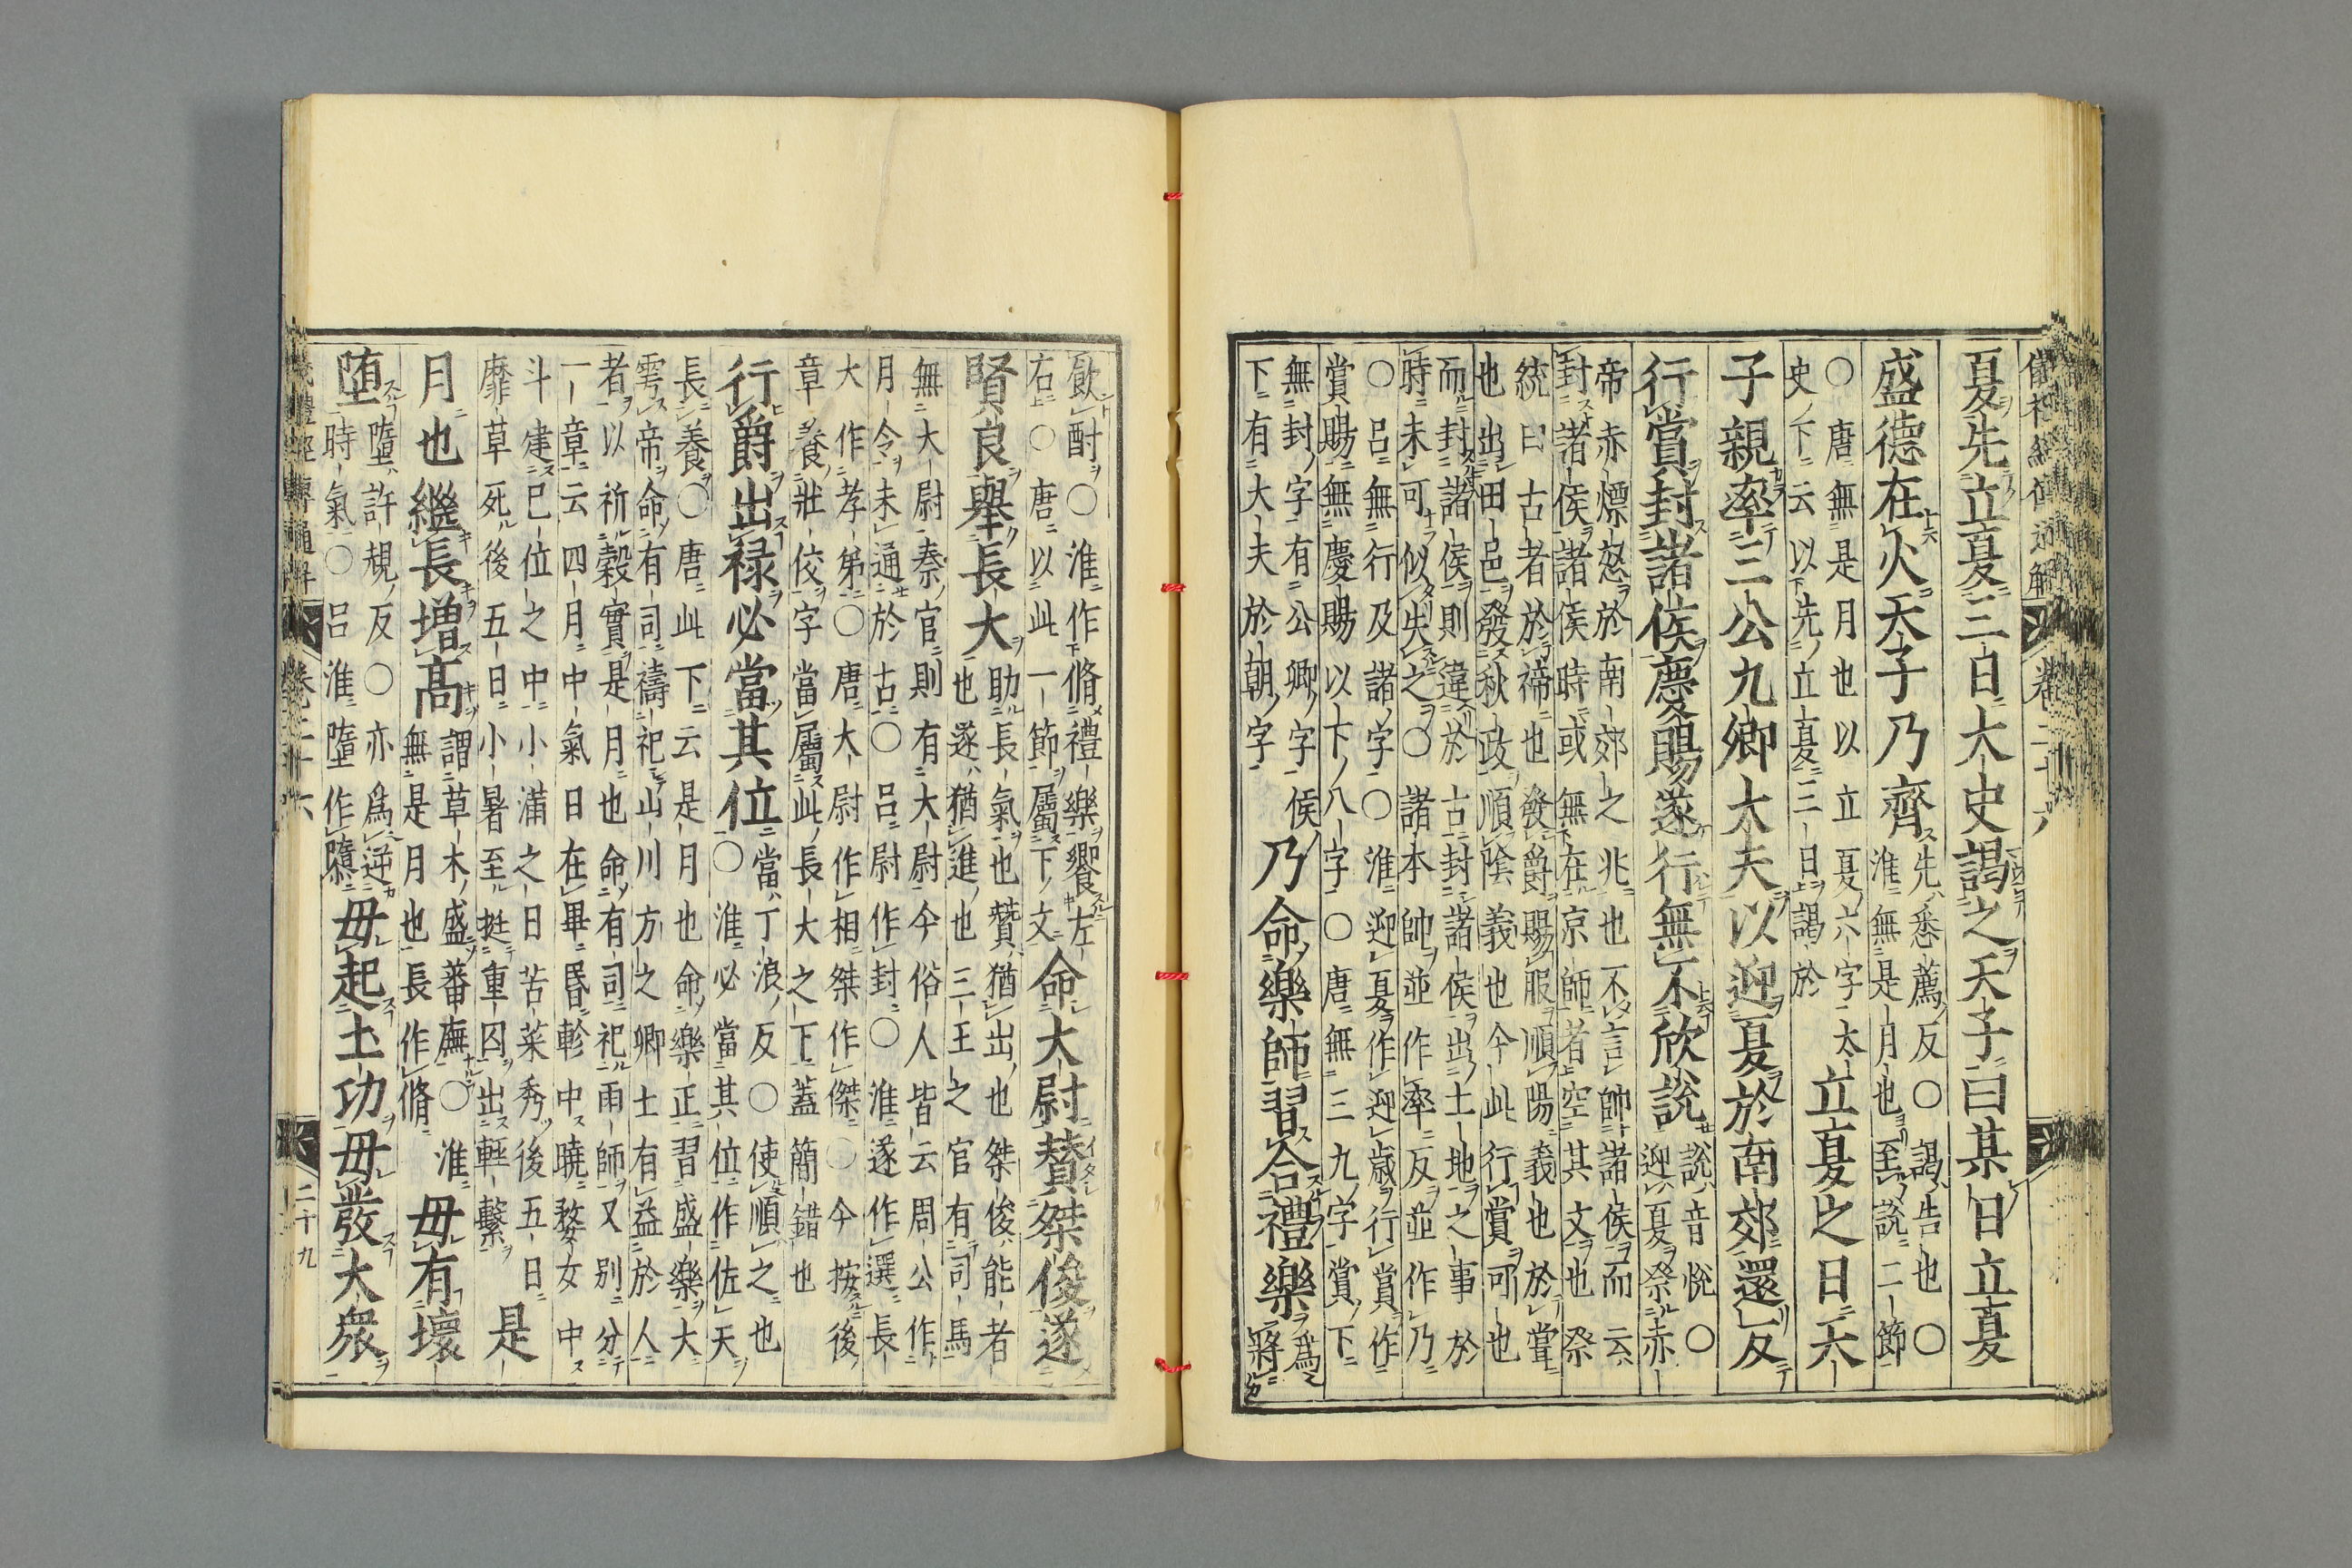 儀禮經傳通解 卷二十六
夏先立夏三日大史謁之天子曰某日立夏
盛德在火天子乃齊
先悉薦反○謁告也○
淮無是月也至說二節
○唐無是月也以立夏六字太
史下云以先立夏三日謁於
立夏之日天
子親率三公九卿大夫以迎夏於南郊還反
行賞封諸侯慶賜遂行無不欣說
說音悅○
迎夏祭赤
帝赤熛怒於南郊之兆也不言帥諸侯而云
封諸侯諸侯時或無在京師者空其文也祭
統曰古者於禘也發爵賜服順陽義也於嘗
也出田邑發秋政順陰義也今此行賞可也
而封諸侯則違於古封諸侯出土地之事於
時未可似失之○諸本帥並作率反並作乃
○呂無行及諸字○淮迎夏作迎歲行賞作
賞賜無慶賜以下八字○唐無三九字賞下
無封字有公卿字侯
下有大夫於朝字
乃命樂師習合禮樂
爲
將
飲酎○淮作脩禮樂饗左
右○唐以此一節屬下文
命大尉贊桀俊遂
賢良舉長大
助長氣也贊猶出也桀俊能者
也遂猶進也三王之官有司馬
無大尉秦官則有大尉今俗人皆云周公作
月令未通於古○呂尉作封○淮遂作選長
大作孝弟○唐大尉作相桀作傑○今按後
章養壯佼字當屬此長大之下蓋簡錯也
行爵出祿必當其位
當丁浪反○使順之也
○淮必當其位作佐天
長養○唐此下云是月也命樂正習盛樂大
雩帝命有司禱祀山川方之卿士有益於人
者以祈穀實是月也命有司祀雨師又別分
一章云四月中氣日在畢昏軫中曉婺女中
斗建巳位之中小滿之日苦菜秀後五日
靡草死後五日小暑至挺重囚出輕繫
是
月也繼長增高
謂草木盛蕃廡○淮
無是月也長作脩
毋有壞
墮
墮許規反○亦爲逆
時氣○呂淮墮作隳
毋起土功毋發大衆
儀禮經傳通解 卷二十六 二十九